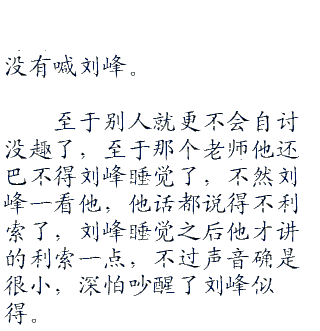 没有喊刘峰。
至于别人就更不会自讨
没趣了，至于那个老师他还
巴不得刘峰睡觉了，不然刘
峰一看他，他话都说得不利
索了，刘峰睡觉之后他才讲
的利索一点，不过声音确是
很小，深怕吵醒了刘峰似
得。